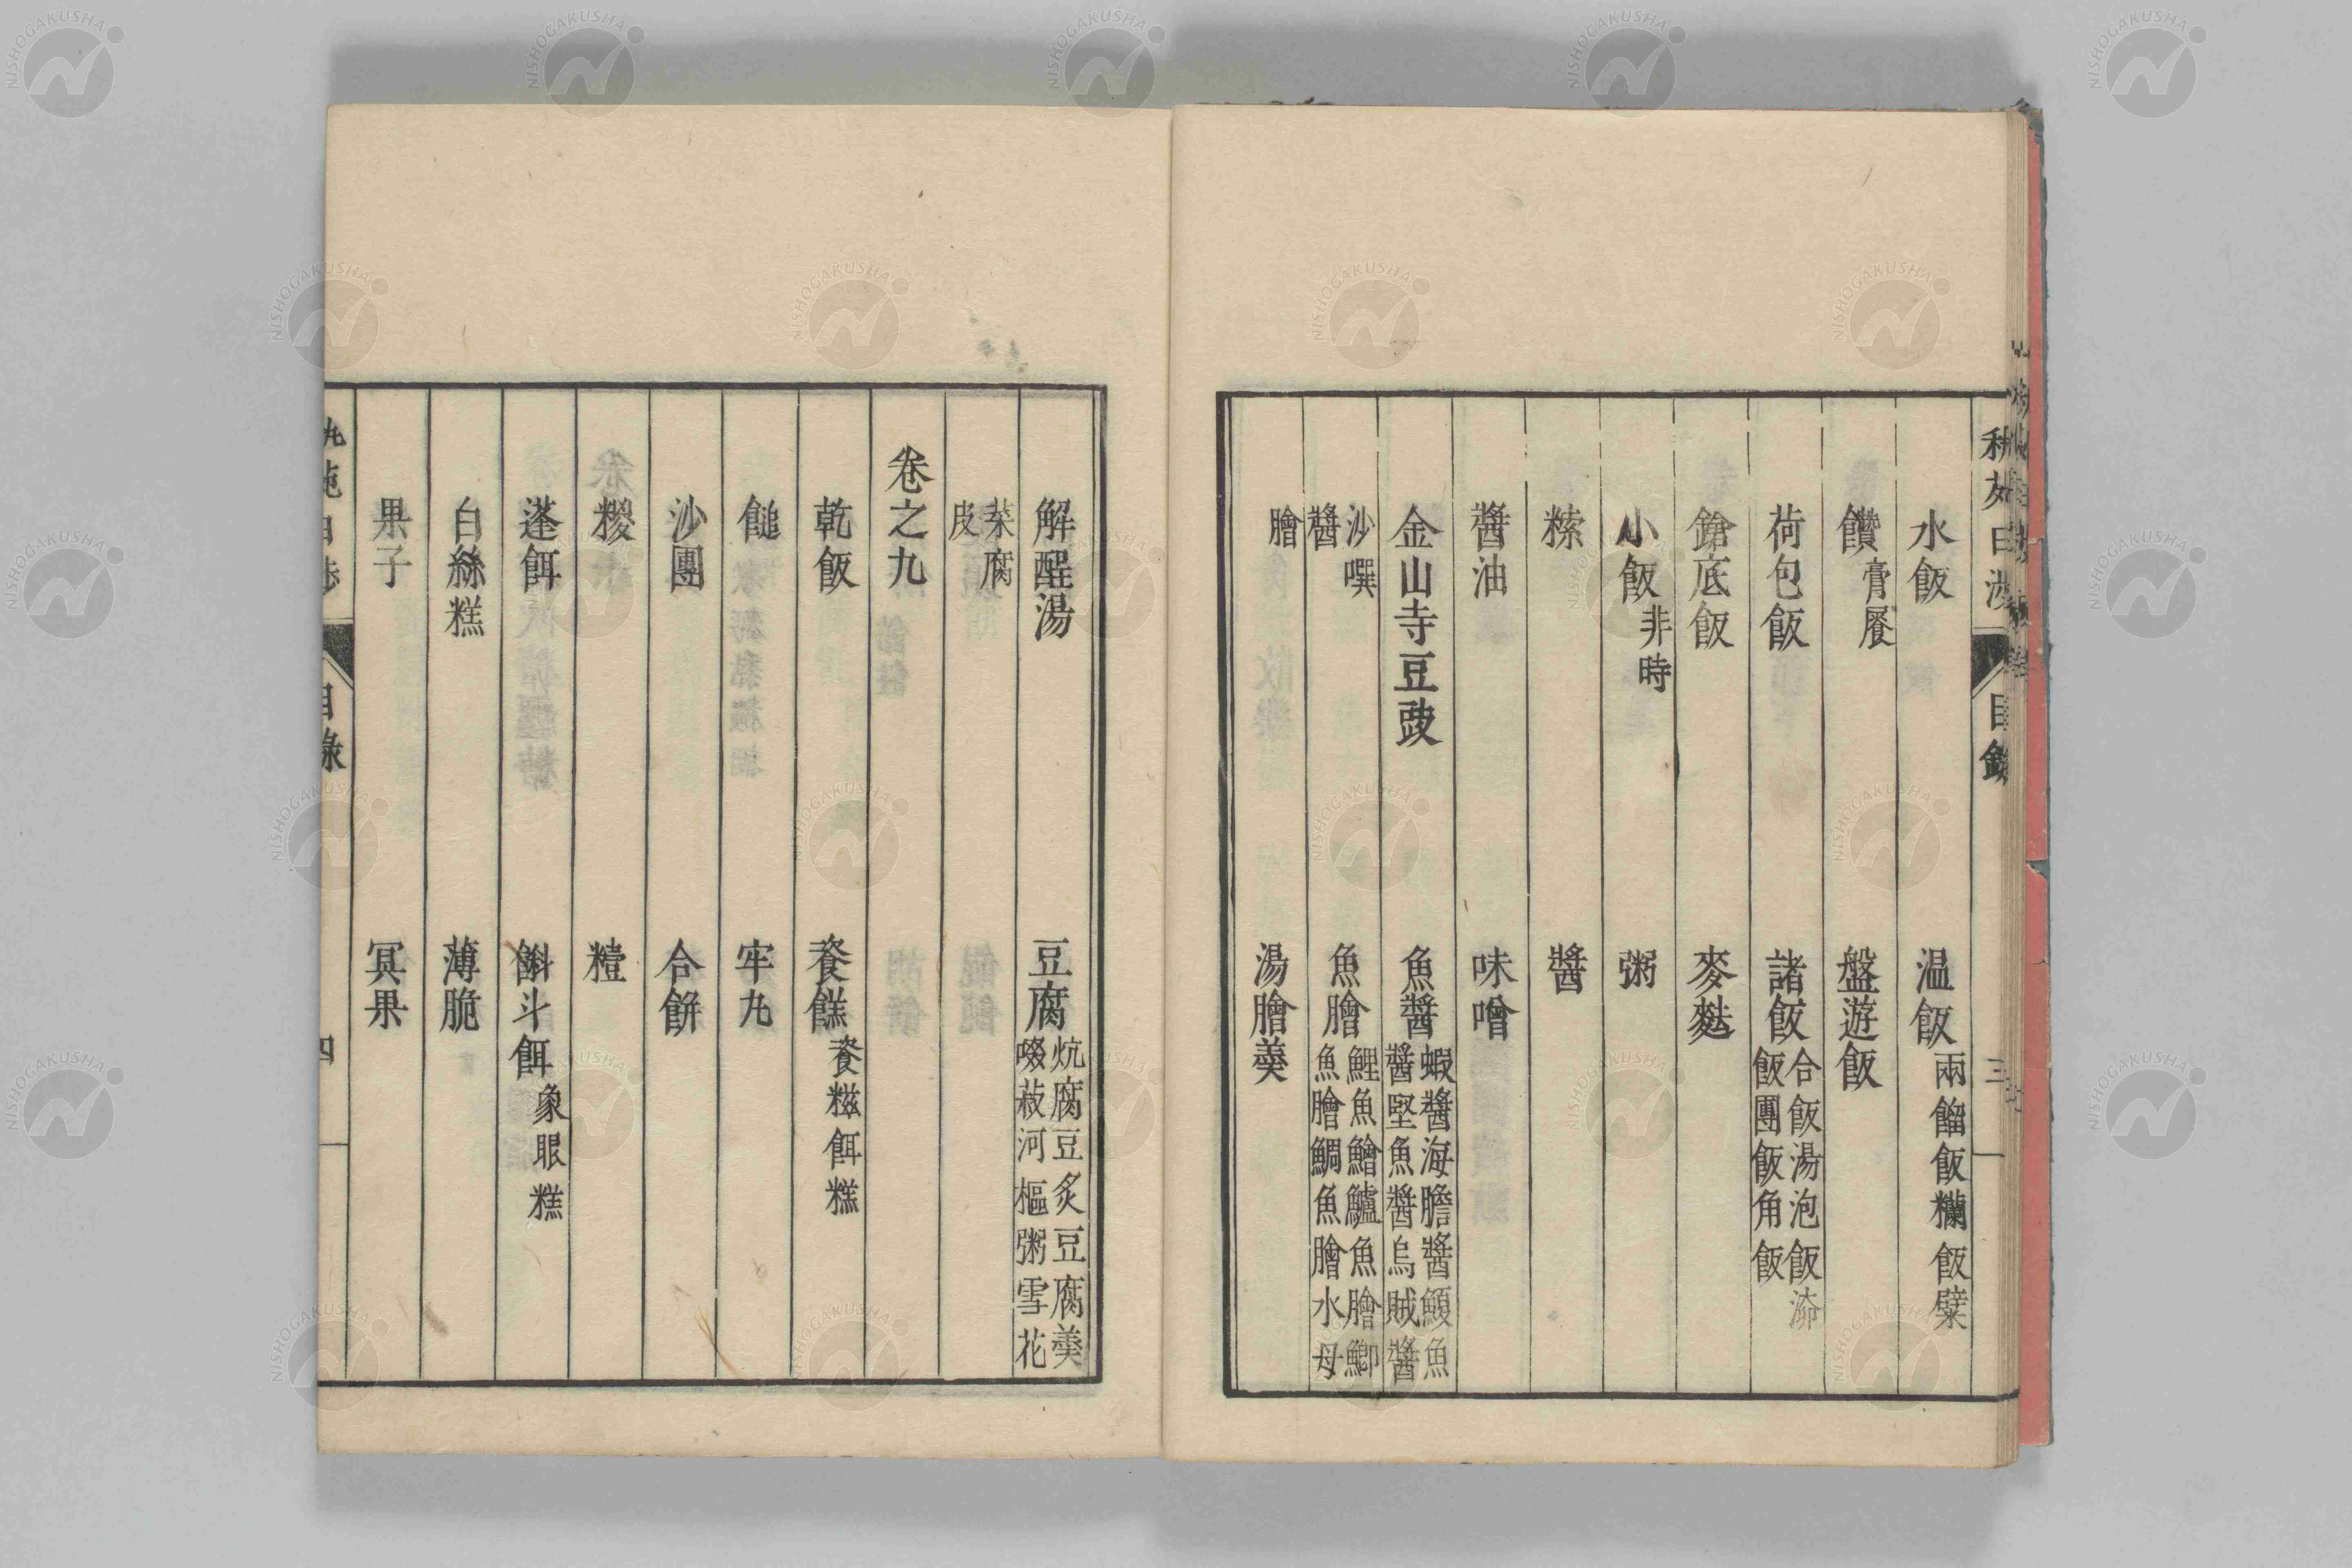 水飯　温飯 兩餾飯 糷飯 糪
饡 膏䬾　盤遊飯
荷包飯　諸飯 合飯 湯泡飯 飯團 飯角飯
鎗底飯　麥麩
小飯 非時　粥
糝　醬
醬油　味噌
金山寺豆豉　魚醬 蝦醬 海膽醬 魚 醬 堅魚醬 烏賊醬
沙噀 醬　魚膾 鯉魚鱠 鱸魚膾 鯽 魚膾 鯛魚膾 水母
膾　湯膾羹
目錄
三
解酲湯　豆腐 炕腐 豆炙 豆腐羹 啜菽 河樞粥 雪花
菜腐 皮
卷之九
乾飯　餈餻 餈糍 餌糕
䭔　牢九
沙團　合餅
糉　䊗
蓬餌　斗餌 象眼糕
白絲糕　薄脆
果子　冥果
目錄
四
NISHOGAKUSHA